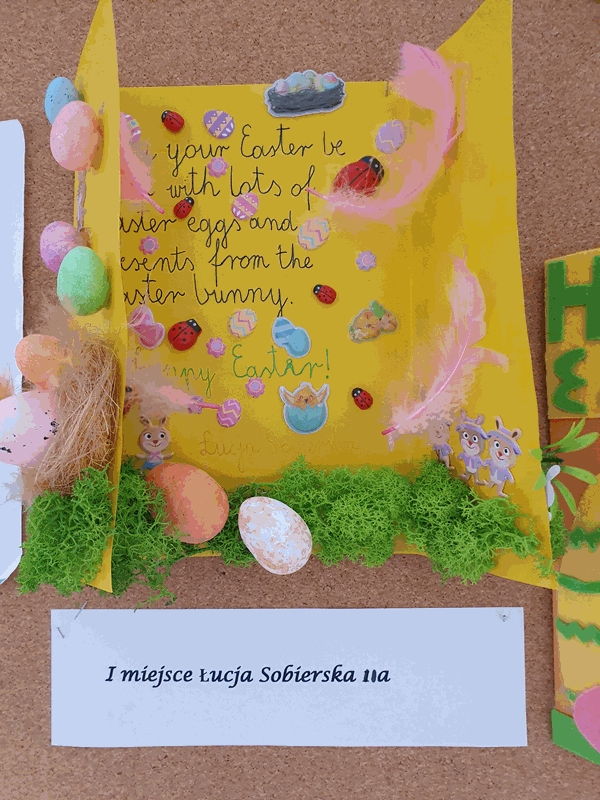 your Easter be
with lots of
aster eggs and
esents from the
aster bunny.
ppy Easter!
Łucja
H
I miejsce Łucja Sobierska IIa